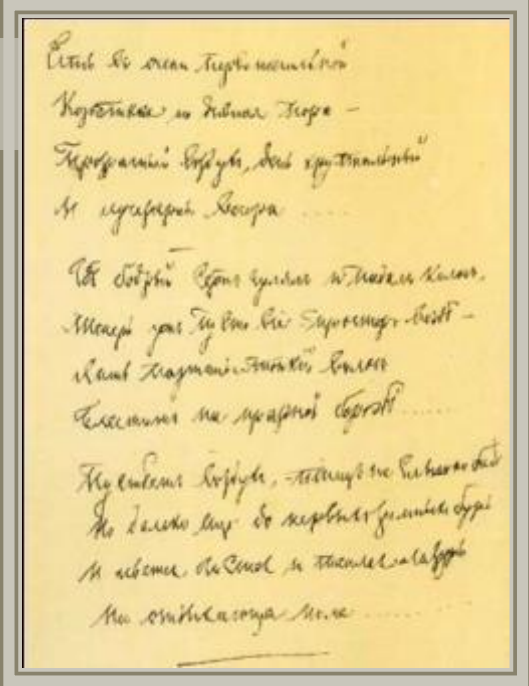 Есть въ осени первоначальной
Короткая но дивная пора —
Прозрачный воздухъ, день хрустальный
И лучезарны вечера ....
Гдѣ бодрый Серпъ гулялъ и падалъ колосъ,
Теперь ужъ пусто все просторъ вездѣ —
Лишь паутины тонкій волосъ
Блеститъ на праздной бороздѣ ......
Пустѣетъ воздухъ, — птицъ не слышно болѣ
Но далеко еще до первыхъ зимнихъ бурь
И льется чистая и теплая лазурь
На отдыхающее поле ........